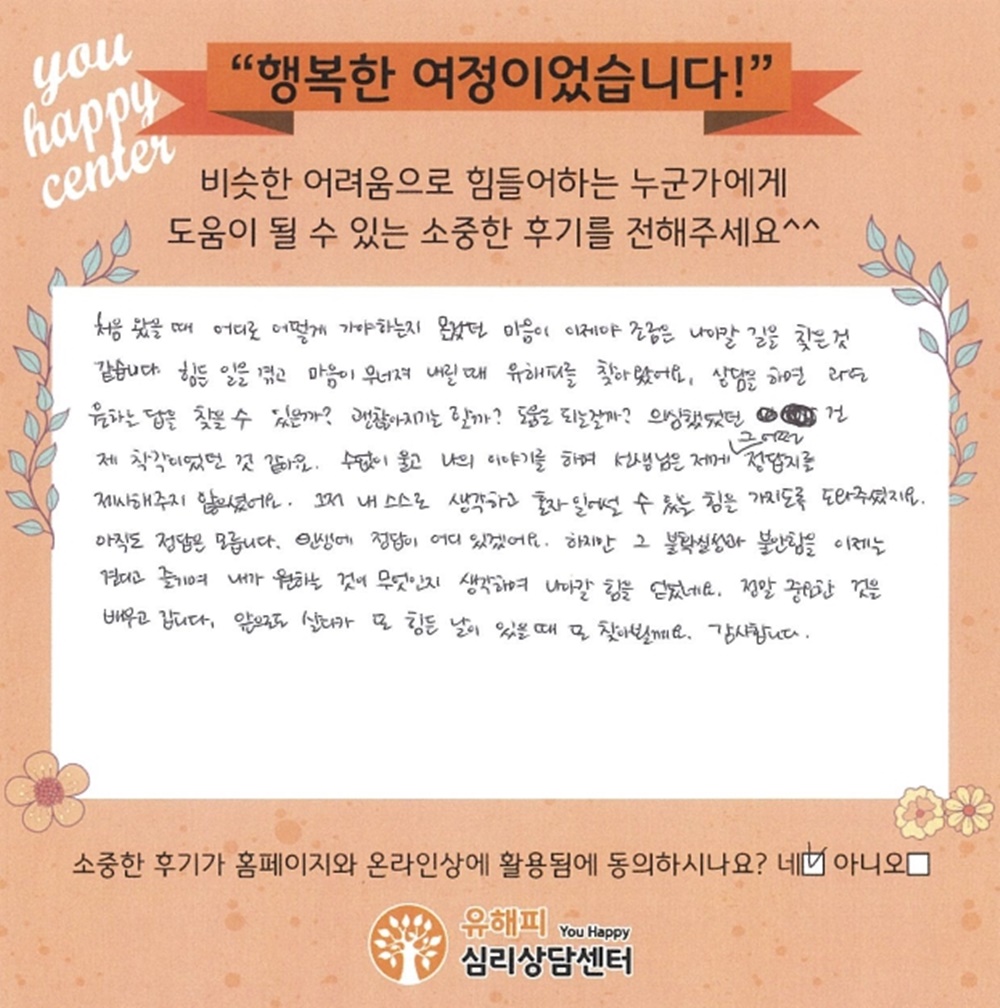 you
happy
center
“행복한 여정이었습니다!”
비슷한 어려움으로 힘들어하는 누군가에게
도움이 될 수 있는 소중한 후기를 전해주세요^^
처음 왔을 때 어디로 어떻게 가야하는지 몰랐던 마음이 이제야 조금은 나아갈 길을 찾은 것
같습니다. 힘든 일을 겪고 마음이 무너져 내릴 때 유해피를 찾아왔어요, 상담을 하면 과연
원하는 답을 찾을 수 있을까? 괜찮아지기는 할까? 도움은 되는걸까? 의심했었던 건
제 착각이었던 것 같아요. 수없이 울고 나의 이야기를 하며 선생님은 제게 그 어떤 정답지를
제시해주지 않으셨어요. 그저 내 스스로 생각하고 혼자 일어설 수 있는 힘을 가지도록 도와주셨지요.
아직도 정답은 모릅니다. 인생에 정답이 어디 있겠어요. 하지만 그 불확실성과 불안함을 이제는
견디고 즐기며 내가 원하는 것이 무엇인지 생각하며 나아갈 힘을 얻었네요. 정말 중요한 것을
배우고 갑니다. 앞으로도 살다가 또 힘든 날이 있을 때 또 찾아뵐게요. 감사합니다.
소중한 후기가 홈페이지와 온라인상에 활용됨에 동의하시나요? 네☑ 아니오☐
유해피 You Happy
심리상담센터